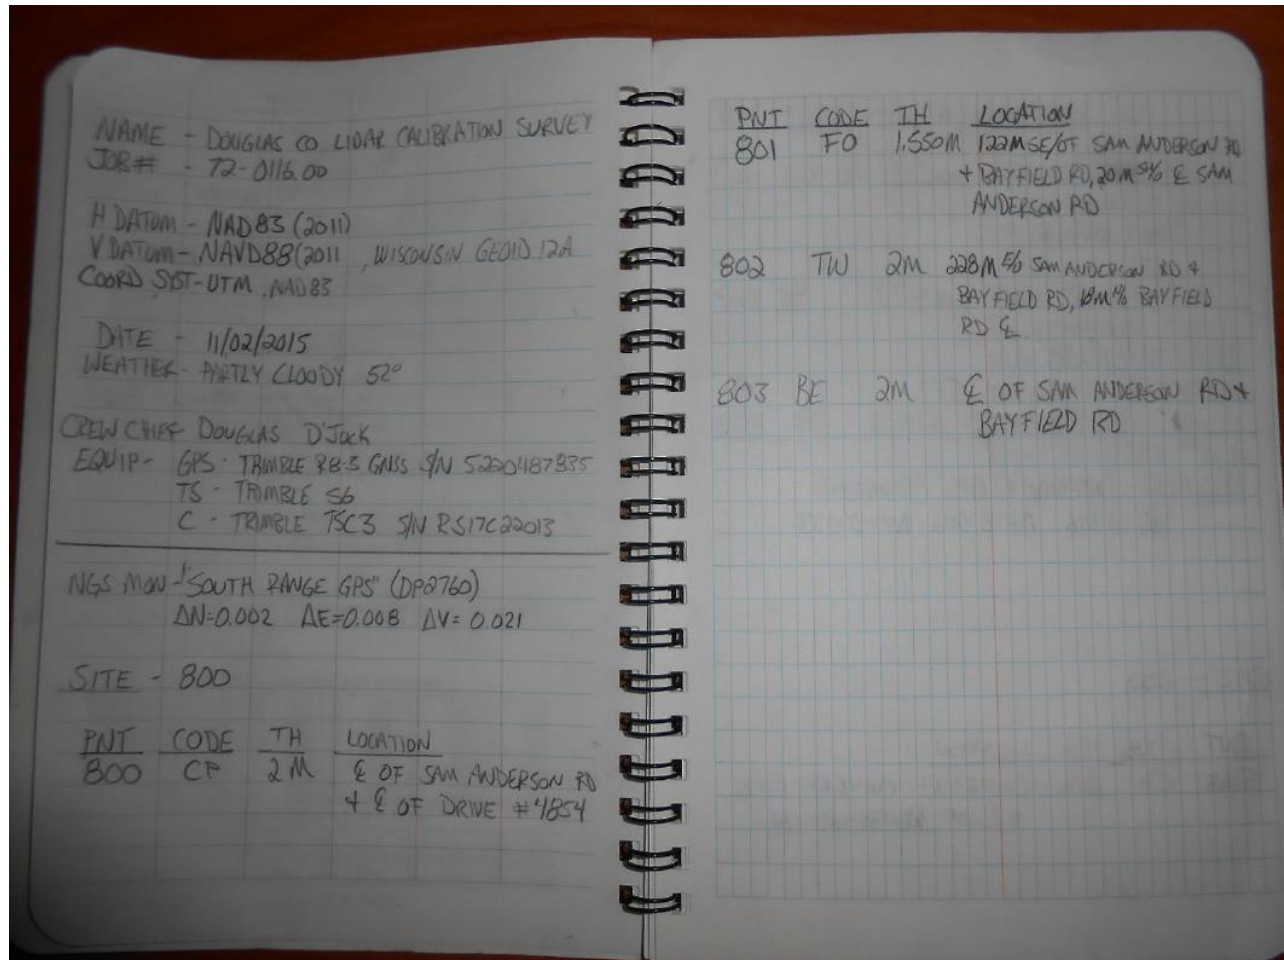 NAME - DOUGLAS CO LIDAR CALIBRATION SURVEY
JOB# - 72-0116.00
H DATUM - NAD83 (2011)
V DATUM - NAVD88(2011 , WISCONSIN GEOID 12A
COORD SYST-UTM, NAD83
DATE - 11/02/2015
WEATHER- PARTLY CLOUDY 52°
CREW CHIEF DOUGLAS D'Jock
EQUIP- GPS - TRIMBLE R8-3 GNSS S/N 5220487835
TS - TRIMBLE S6
C - TRIMBLE TSC3 S/N RS17C22013
NGS MON -"SOUTH RANGE GPS" (DP2760)
ΔN=0.002 ΔE=0.008 ΔV= 0.021
SITE - 800
PNT CODE TH LOCATION
800 CP 2M ℄ OF SAM ANDERSON RD
+ ℄ OF DRIVE #4854
PNT CODE TH LOCATION
801 FO 1.550M 122M SE/OF SAM ANDERSON RD
+ BAYFIELD RD, 20M ℄ SAM
ANDERSON RD
802 TW 2M 228M E/O SAM ANDERSON RD +
BAYFIELD RD, BAYFIELD
RD ℄
803 BE 2M ℄ OF SAM ANDERSON RD +
BAYFIELD RD